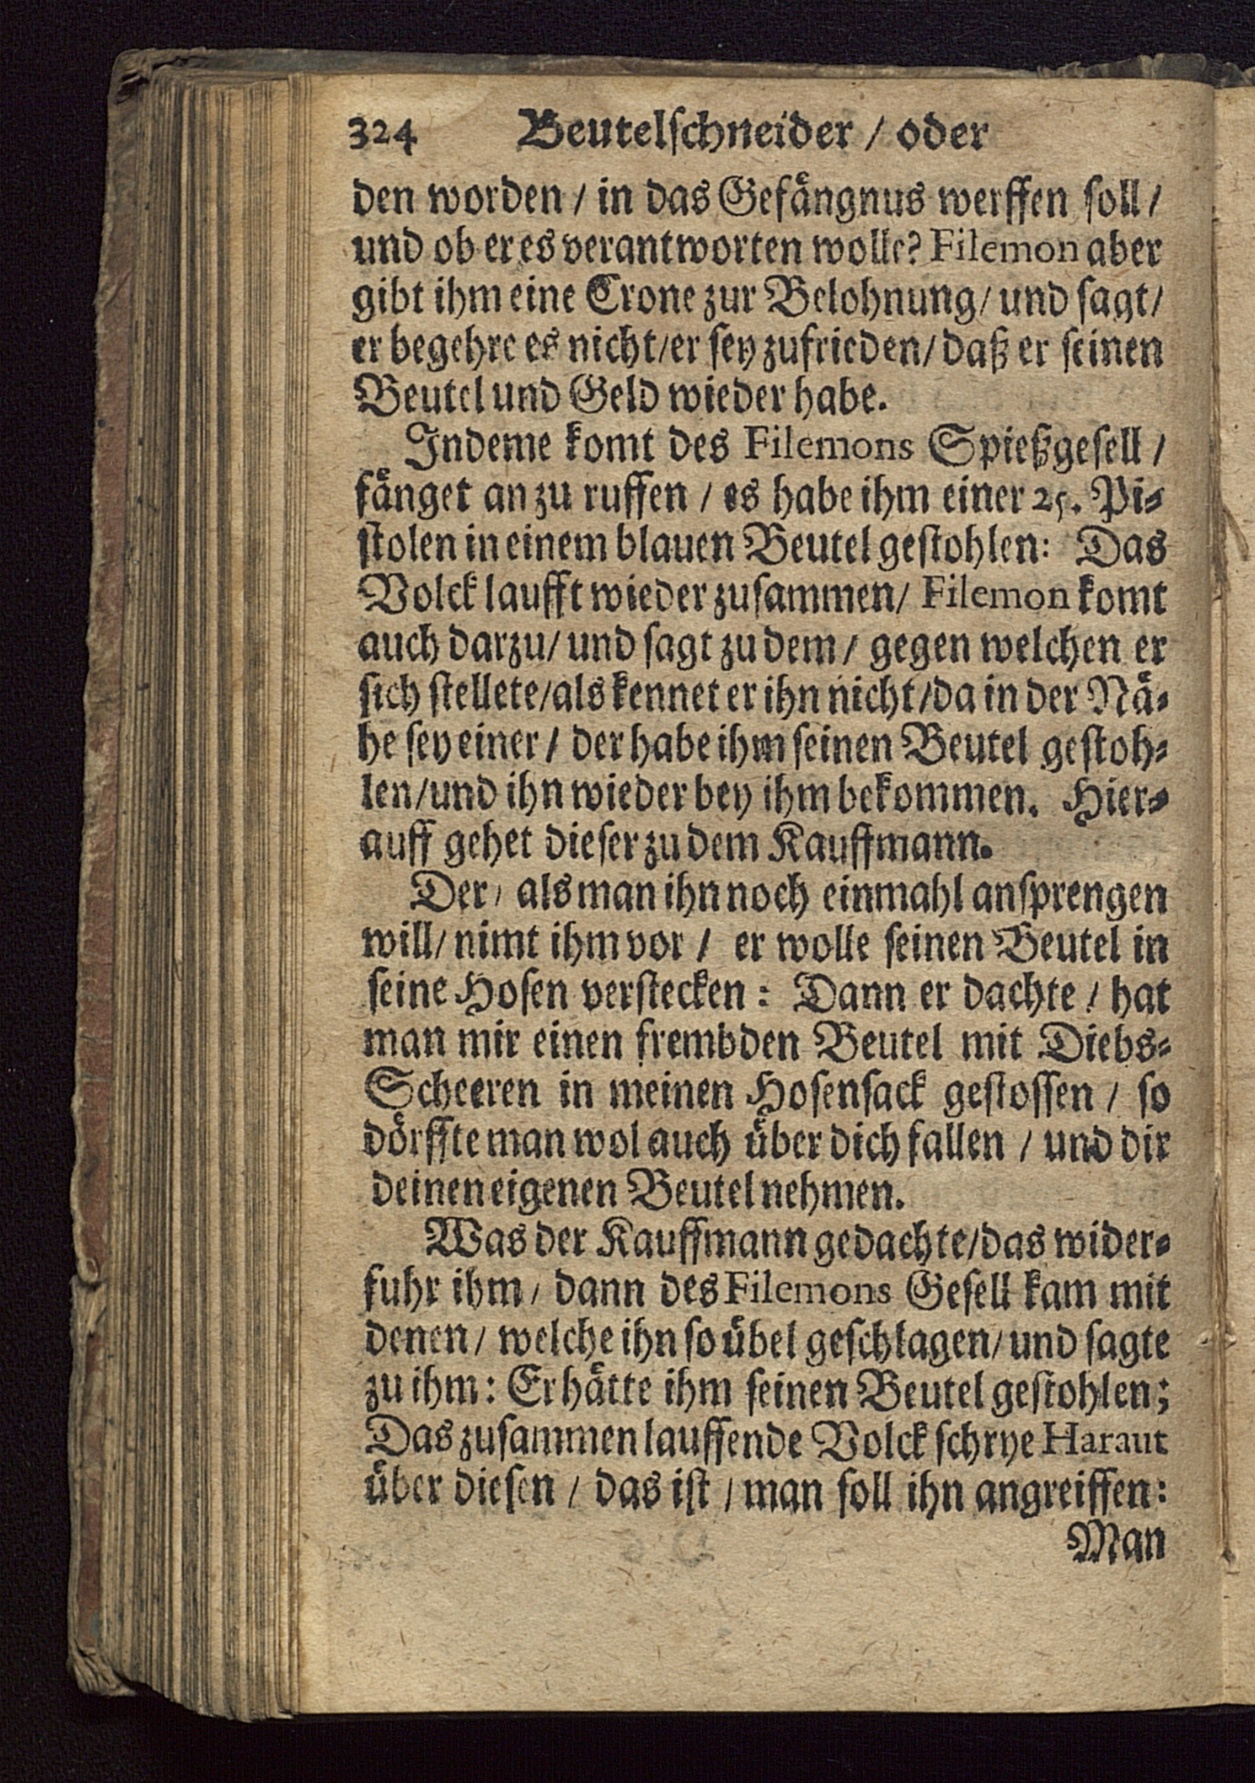 324 Beutelschneider / oder
den worden / in das Gefängnus werffen soll /
und ob er es verantworten wolle? Filemon aber
gibt ihm eine Crone zur Belohnung / und sagt /
er begehre es nicht / er sey zufrieden / daß er seinen
Beutel und Geld wieder habe.
Indeme komt des Filemons Spießgesell /
fänget an zu ruffen / es habe ihm einer 25. Pi-
stolen in einem blauen Beutel gestohlen: Das
Volck laufft wieder zusammen / Filemon komt
auch darzu / und sagt zu dem / gegen welchen er
sich stellete / als kennet er ihn nicht / da in der Nä-
he sey einer / der habe ihm seinen Beutel gestoh-
len / und ihn wieder bey ihm bekommen. Hier-
auff gehet dieser zu dem Kauffmann.
Der / als man ihn noch einmahl ansprengen
will / nimt ihm vor / er wolle seinen Beutel in
seine Hosen verstecken: Dann er dachte / hat
man mir einen frembden Beutel mit Diebs-
Scheeren in meinen Hosensack gestossen / so
dörffte man wol auch über dich fallen / und dir
deinen eigenen Beutel nehmen.
Was der Kauffmann gedachte / das wider-
fuhr ihm / dann des Filemons Gesell kam mit
denen / welche ihn so übel geschlagen / und sagte
zu ihm: Er hätte ihm seinen Beutel gestohlen;
Das zusammen lauffende Volck schrye Haraut
über diesen / das ist / man soll ihn angreiffen:
Man